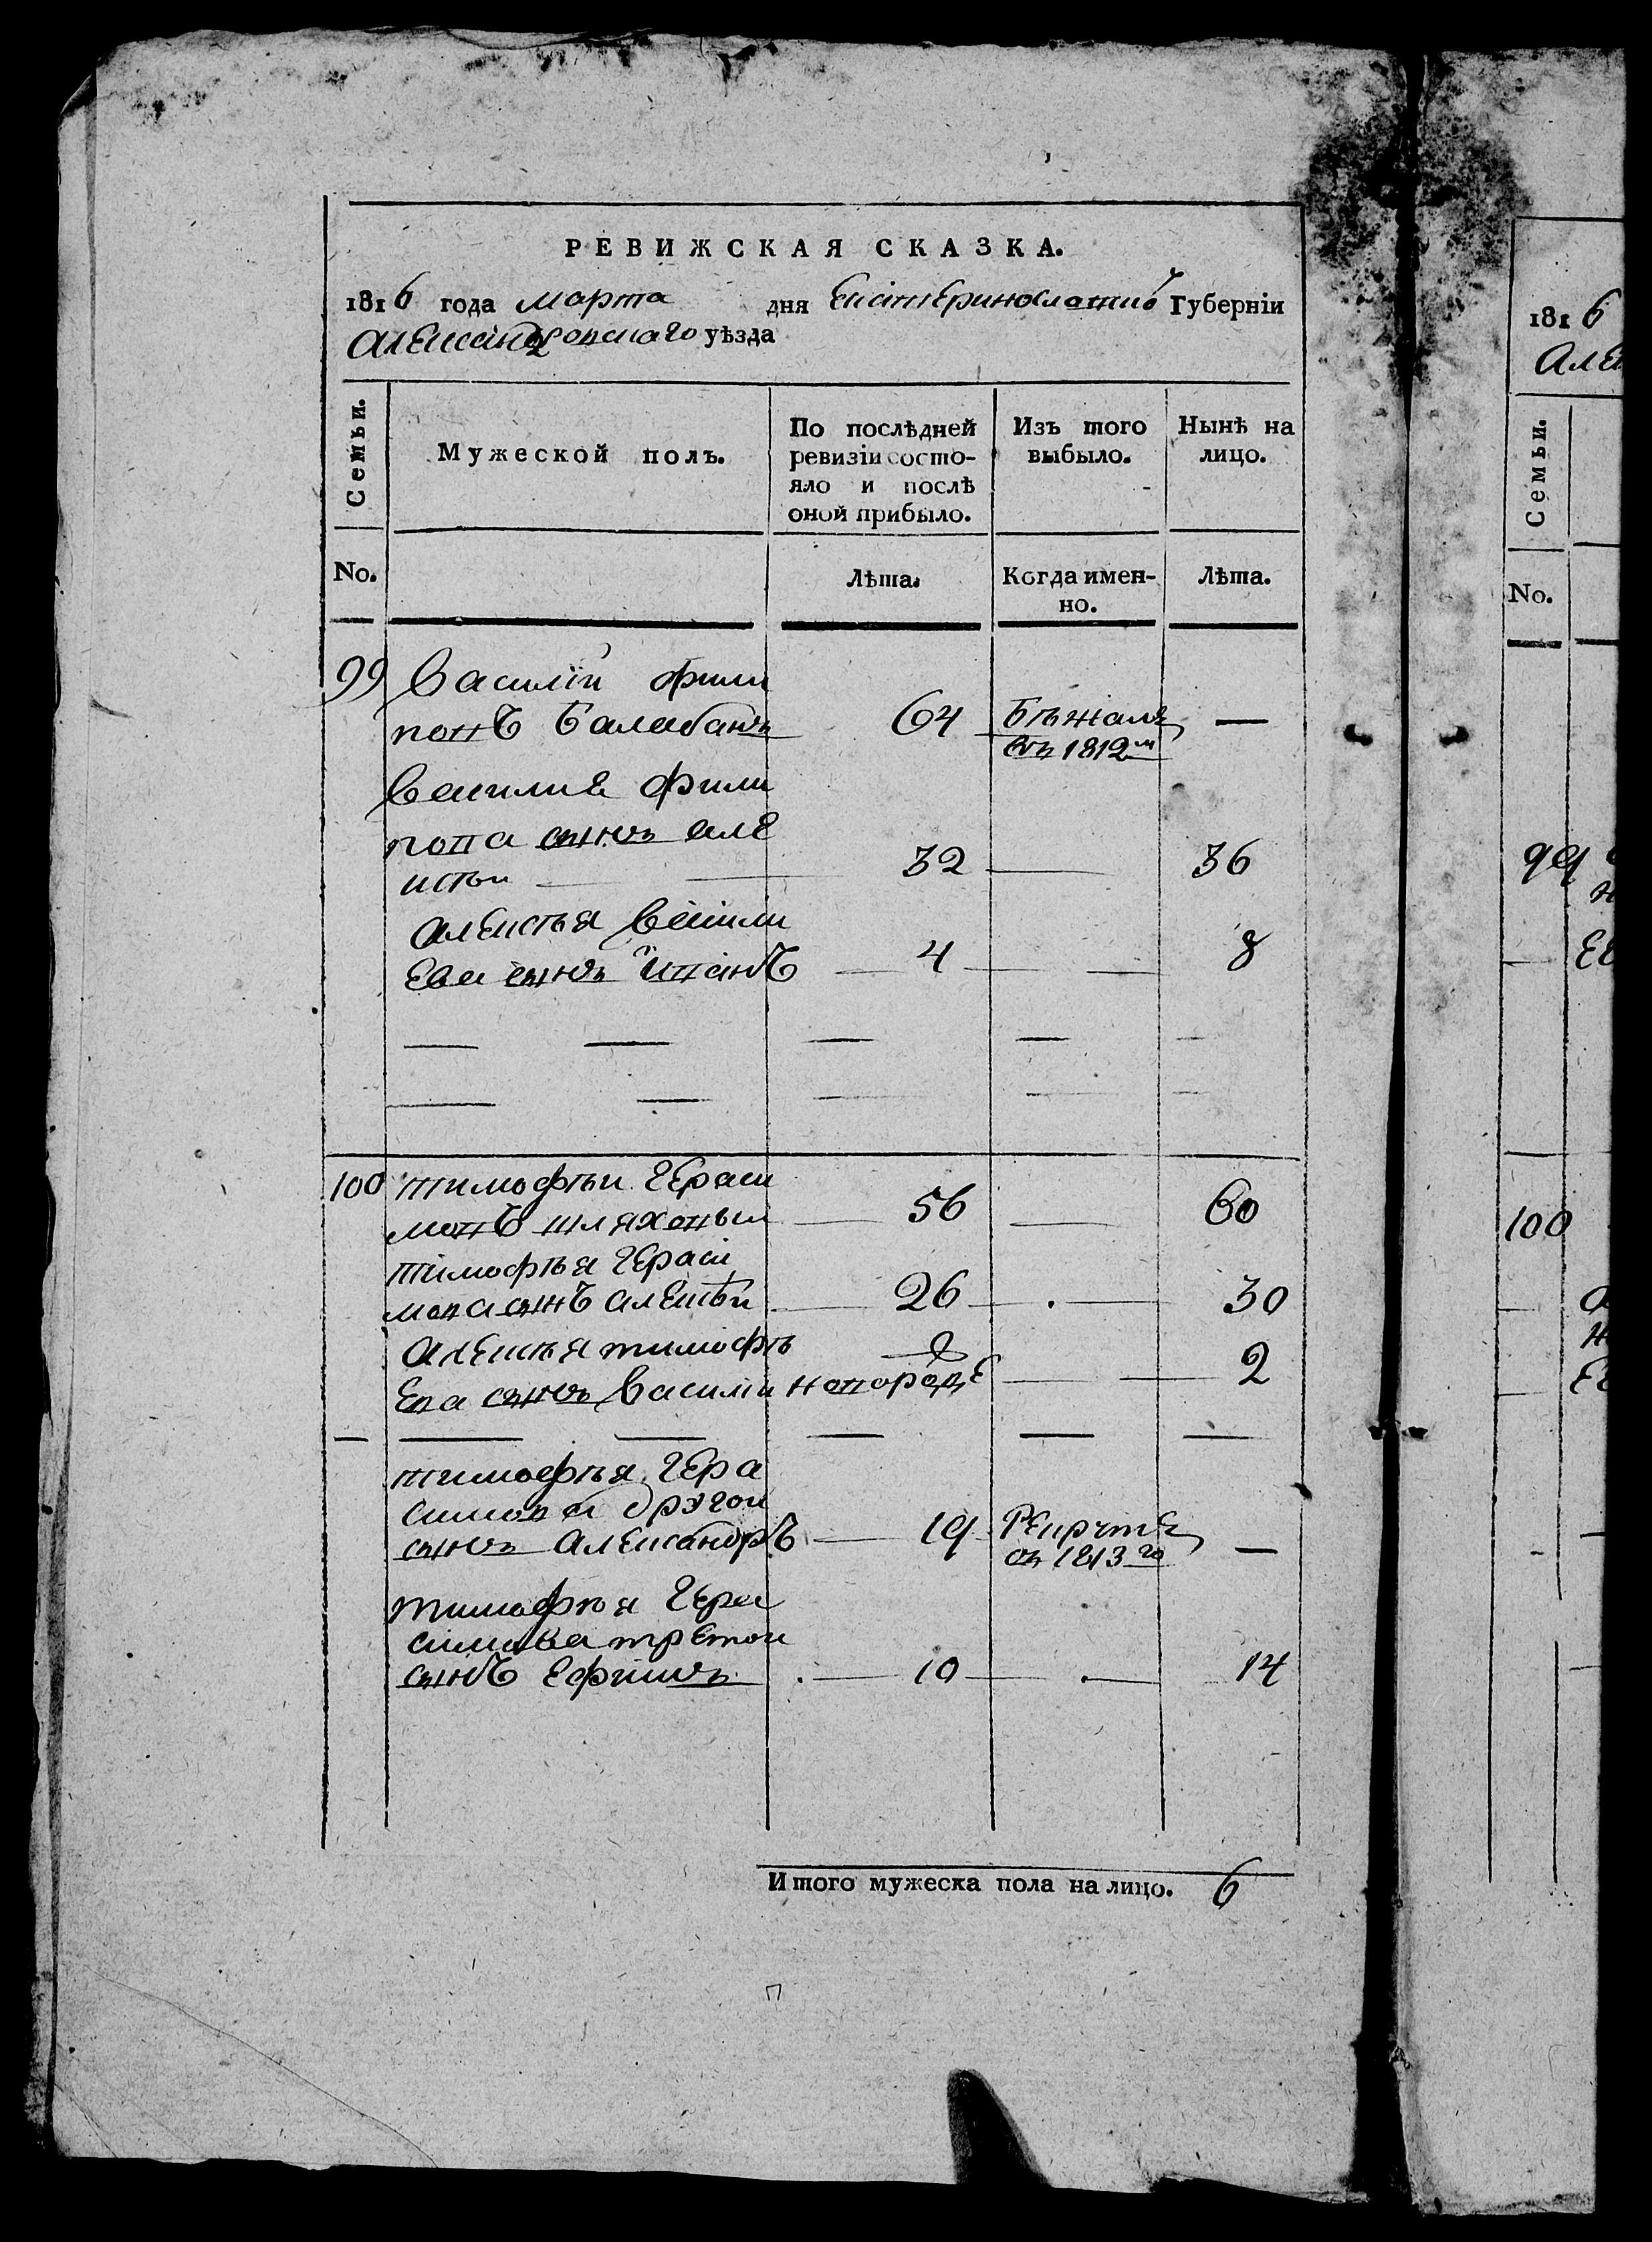 РЕВИЖСКАЯ СКАЗКА.
1816 года марта дня Екатеринославской Губерніи
Александровскаго уѣзда
Семьи.
Мужеской полъ.
По послѣдней ревизіи состо-
яло и послѣ
оной прибыло.
Изъ того
выбыло.
Нынѣ на
лицо.
No.
Лѣта.
Когда имен-
но.
Лѣта.
99 Василій Фили
повъ Балабанъ 64 Бѣжалъ —
въ 1812м
Василия Фили
пова сынъ Але
ксѣй 32 — 36
Алексѣя Васили
ева сынъ Иванъ 4 — 8
100 Тимофѣй Гераси
мовъ Шляховый 56 — 60
Тимофѣя Гераси
мова сынъ Алексѣй 26 — 30
Алексѣя Тимофѣ
ева сынъ Василий новорож — 2
Тимофѣя Гера
симова другой
сынъ Александръ 19 Рекрутъ —
въ 1813го
Тимофѣя Гера
симова третой
сынъ Ефимъ 10 — 14
Итого мужеска пола на лицо. 6
1816
Але
Семьи.
No.
99
100